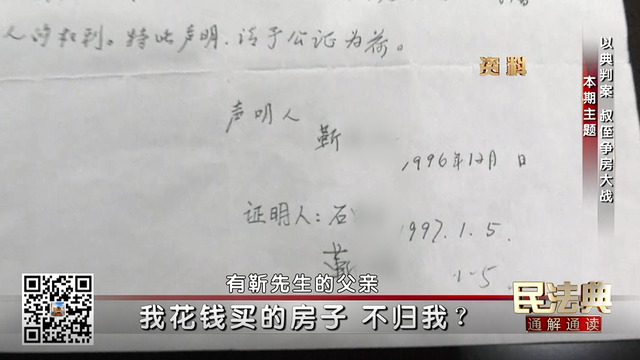 人的权利。特此声明，请予公证为荷。
资料
声明人
靳
1996年12月 日
证明人：石
1997.1.5.
靳
1.5
以典判案 叔侄争房大战
本期主题
有靳先生的父亲
我花钱买的房子 不归我？
民法典
通解通读